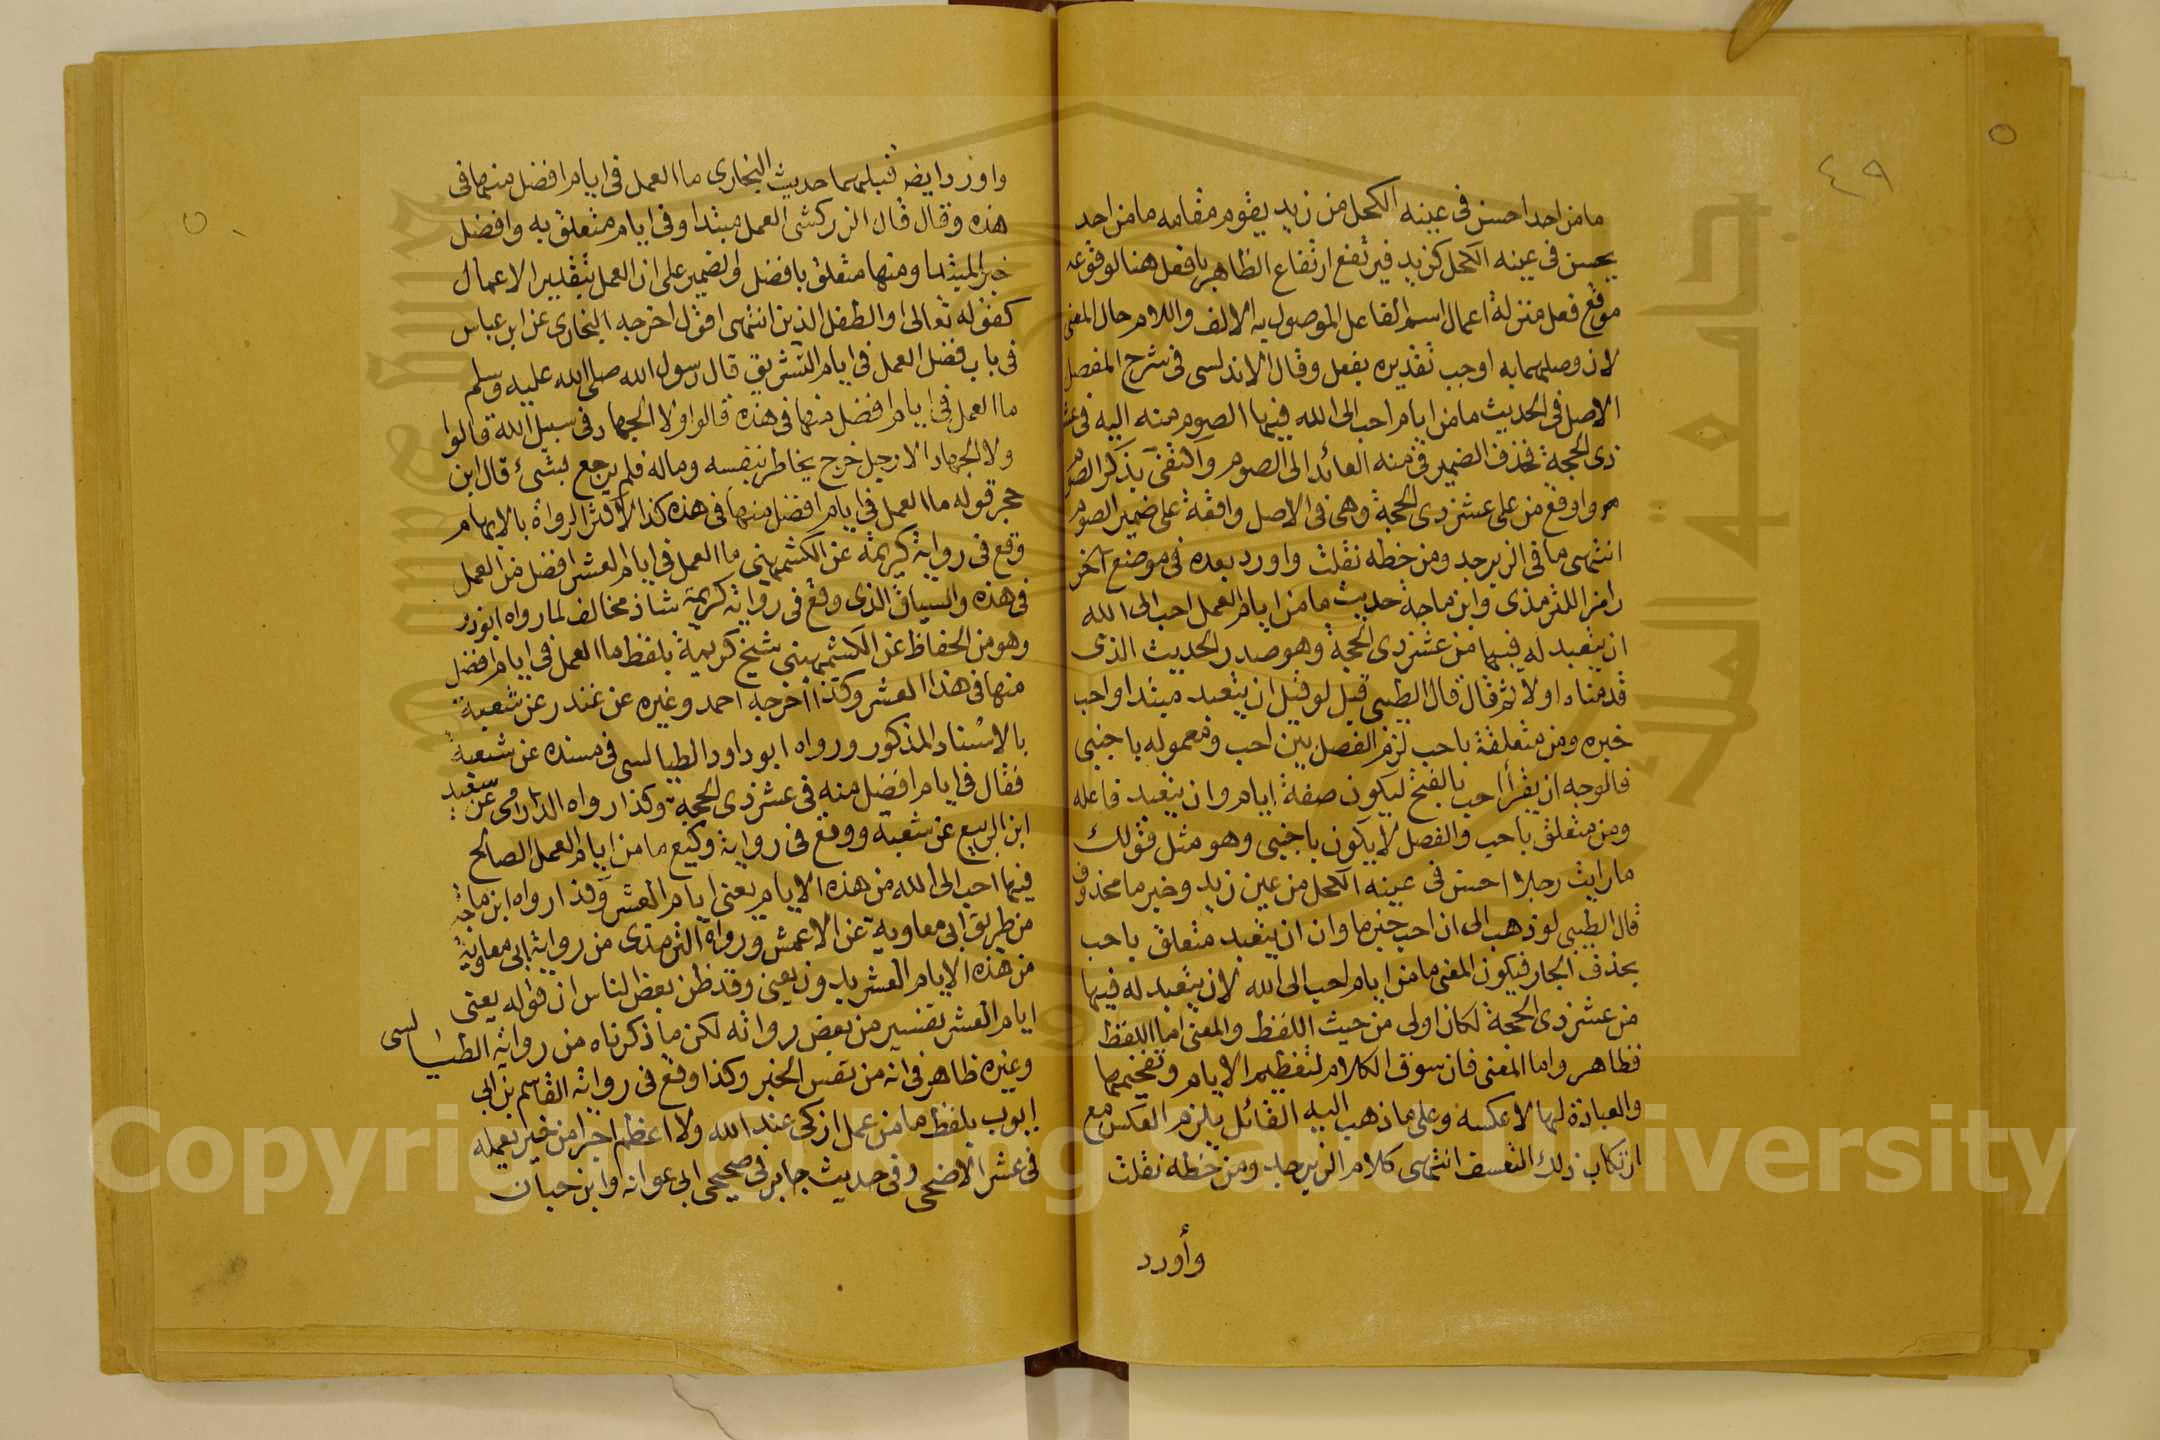 ٤٩
ما من احد احسن فى عينه الكحل من زيد يقوم مقامه ما من احد
يحسن فى عينه الكحل كزيد فيرتفع ارتفاع الظاهر بافعل هنا لوقوعه
موقع فعل منزلة اعمال اسم الفاعل الموصول به الالف واللام حال المعنى
لان وصلهما به اوجب تقديره بفعل وقال الاندلسى فى شرح المفصل
الاصل فى الحديث ما من ايام احب الى الله فيها الصوم منه اليه فى عشر
ذى الحجة فحذف الضمير فى منه العائد الى الصوم واكتفى بذكر الصوم
م واوقع من على عشر ذى الحجة وهى فى الاصل واقعة على ضمير الصوم
انتهى ما فى الزبرجد ومن خطه نقلت واورد بعده فى موضع آخر
رامزا للترمذى وابن ماجة حديث ما من ايام العمل احب الى الله
ان يتعبد له فيها من عشر ذى الحجة وهو صدر الحديث الذى
قدمناه اولا ثم قال قال الطيبى قيل لو قيل ان يتعبد مبتدا واحب
خبره ومن متعلقة باحب لزم الفصل بين احب ومعموله باجنبى
فالوجه ان يقرأ احب بالفتح ليكون صفة ايام وان يتعبد فاعله
ومن متعلق باحب والفصل لا يكون باجنبى وهو مثل قولك
ما رايت رجلا احسن فى عينه الكحل من عين زيد وخبر ما محذوف
قال الطيبى لو ذهب الى ان احب خبر ما وان ان يتعبد متعلق باحب
بحذف الجار فيكون المعنى ما من ايام احب الى الله لان يتعبد له فيها
من عشر ذى الحجة لكان اولى من حيث اللفظ والمعنى اما اللفظ
فظاهر واما المعنى فان سوق الكلام لتعظيم الايام وتفخيمها
والعبادة لها لا عكسه وعلى ما ذهب اليه القائل يلزم العكس مع
ارتكاب ذلك التعسف انتهى كلام الزبرجد ومن خطه نقلت
وأورد
واورد ايضا قبلهما حديث البخارى ما العمل فى ايام افضل منها فى
هذه وقال قال الزركشى العمل مبتدا وفى ايام متعلق به وافضل
خبر المبتدا ومنها متعلق بافضل والضمير على ان العمل بتقدير الاعمال
كقوله تعالى او الطفل الذين انتهى اقول اخرجه البخارى عن ابن عباس
فى باب فضل العمل فى ايام التشريق قال رسول الله صلى الله عليه وسلم
ما العمل فى ايام افضل منها فى هذه قالوا ولا الجهاد فى سبيل الله قالوا
ولا الجهاد الا رجل خرج يخاطر بنفسه وماله فلم يرجع بشئ قال ابن
حجر قوله ما العمل فى ايام افضل منها فى هذه كذا لأكثر الرواة بالابهام
وقع فى رواية كريمة عن الكشميهنى ما العمل فى ايام العشر افضل من العمل
فى هذه والسياق الذى وقع فى رواية كريمة شاذ مخالف لما رواه ابوذر
وهو من الحفاظ عن الكشميهنى شيخ كريمة بلفظ ما العمل فى ايام افضل
منها فى هذا العشر وكذا أخرجه احمد وغيره عن غندر عن شعبة
بالاسناد المذكور ورواه ابو داود الطيالسى فى مسنده عن شعبة
فقال فى ايام افضل منه فى عشر ذى الحجة وكذا رواه الدارمى عن سعيد
ابن الربيع عن شعبة ووقع فى رواية وكيع ما من ايام العمل الصالح
فيها احب الى الله من هذه الايام يعنى ايام العشر وكذا رواه ابن ماجة
من طريق ابى معاوية عن الاعمش ورواه الترمذى من رواية ابى معاوية
من هذه الايام العشر بدون يعنى وقد ظن بعض الناس ان قوله يعنى
ايام العشر تفسير من بعض رواته لكن ما ذكرناه من رواية الطيالسى
وغيره ظاهر فى انه من نفس الخبر وكذا وقع فى رواية القاسم بن ابى
ايوب بلفظ ما من عمل ازكى عند الله ولا اعظم اجرا من خير يعمله
فى عشر الاضحى وفى حديث جابر فى صحيحى ابى عوانه وابن حبان
جامعة الملك سعود
1957
Copyright © King Saud University